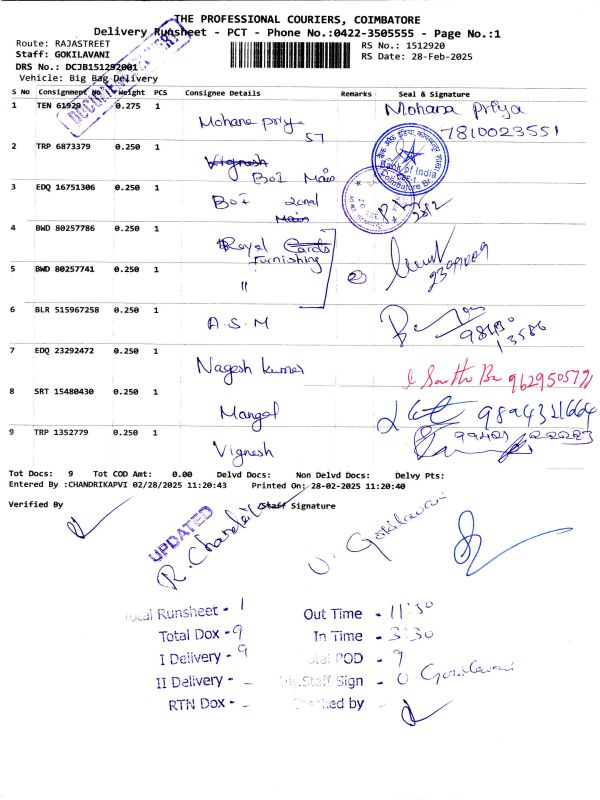 THE PROFESSIONAL COURIERS, COIMBATORE
Delivery Runsheet - PCT - Phone No.:0422-3505555 - Page No.:1
Route: RAJASTREET
RS No.: 1512920
Staff: GOKILAVANI
RS Date: 28-Feb-2025
DRS No.: DCJB151292001
Vehicle: Big Bag Delivery
S No Consignment No Weight PCS Consignee Details Remarks Seal & Signature
1 TEN 0.275 1 Mohana priya Mohana Priya
57 7810023551
2 TRP 6873379 0.250 1 Vignesh
BOI Main
Bank of India
Coimbatore Br.
3 EDQ 16751306 0.250 1 BOI 2nd
Main
4 BWD 80257786 0.250 1 Royal Cards
Furnishing
5 BWD 80257741 0.250 1 " 2
6 BLR 515967258 0.250 1 A.S.M
13586
7 EDQ 23292472 0.250 1 Nagesh kumar
8 SRT 15480430 0.250 1 Mangal 9894321664
9 TRP 1352779 0.250 1 Vignesh
Tot Docs: 9 Tot COD Amt: 0.00 Delvd Docs: Non Delvd Docs: Delvy Pts:
Entered By :CHANDRIKAPVI 02/28/2025 11:20:43 Printed On: 28-02-2025 11:20:40
Verified By /Staff Signature
UPDATED
U. Gokilavani
Total Runsheet - 1 Out Time - 11:50
Total Dox - 9 In Time - 3:30
I Delivery - 9 Total POD - 9
II Delivery - - Staff Sign - U. Gokilavani
RTN Dox - - Checked by -